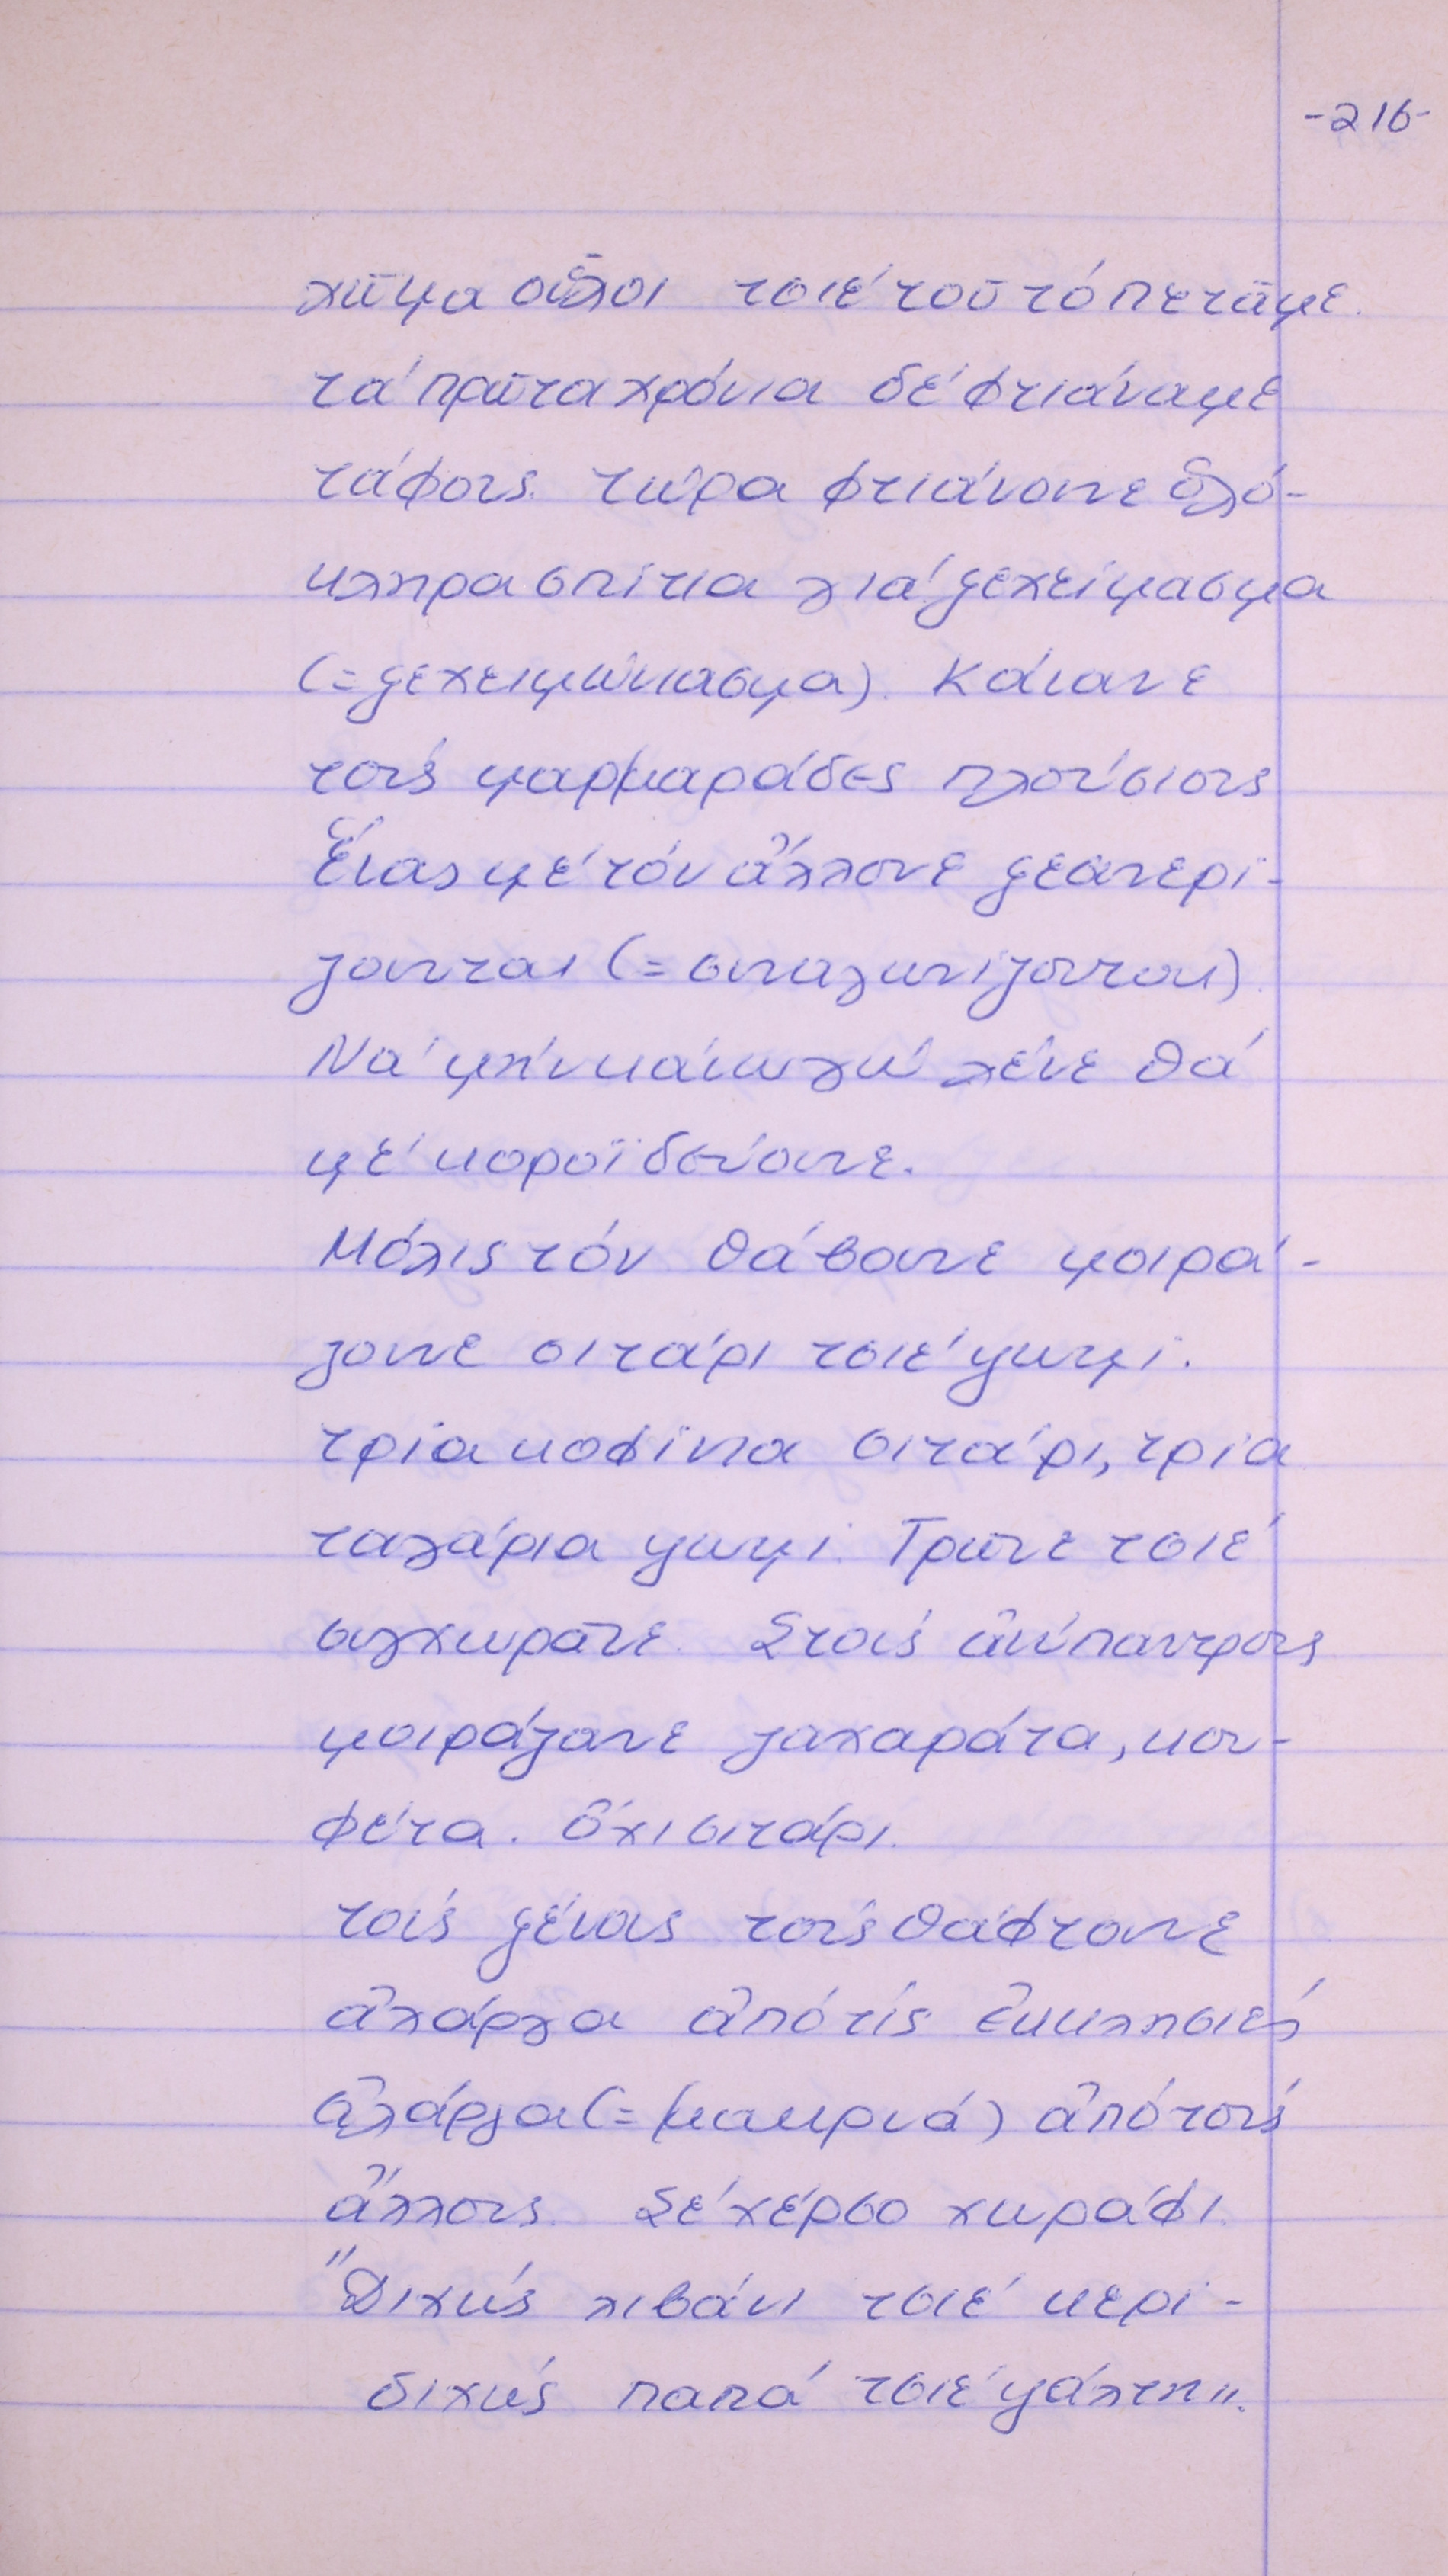 -216-
χῶμα οὗλοι τσιέ τοῦ τό πετᾶμε.
τά πρῶτα χρόνια δέ φτιάναμε
τάφους. τώρα φτιάνουνε ὁλό-
κληρα σπίτια γιά ξεχείμασμα
(=ξεχειμώνιασμα). Κάνανε
τούς μαρμαράδες πλούσιους
Ἕνας μέ τόν ἄλλονε ξεσυνερί-
ζουνται (=συναγωνίζονται).
Νά μήν κάνω γώ λένε θά
μέ κοροϊδεύουνε.
Μόλις τόν θάβουνε μοιρά-
ζουνε σιτάρι τσιέ ψωμί.
τρία κοφίνια σιτάρι, τρία
ταγάρια ψωμί. Τρῶνε τσιέ
συγχωρᾶνε. Στούς ἀνύπαντρους
μοιράζανε ζαχαράτα, κου-
φέτα. ὄχι σιτάρι.
τούς ξένους τούς θάφτουνε
ἀλάργα ἀπό τίς ἐκκλησιές
ἀλάργα (=μακρυά) ἀπό τούς
ἄλλους. Σέ χέρσο χωράφι.
"Διχώς λιβάνι τσιέ κερί-
διχώς παπά τσιέ ψάλτη".